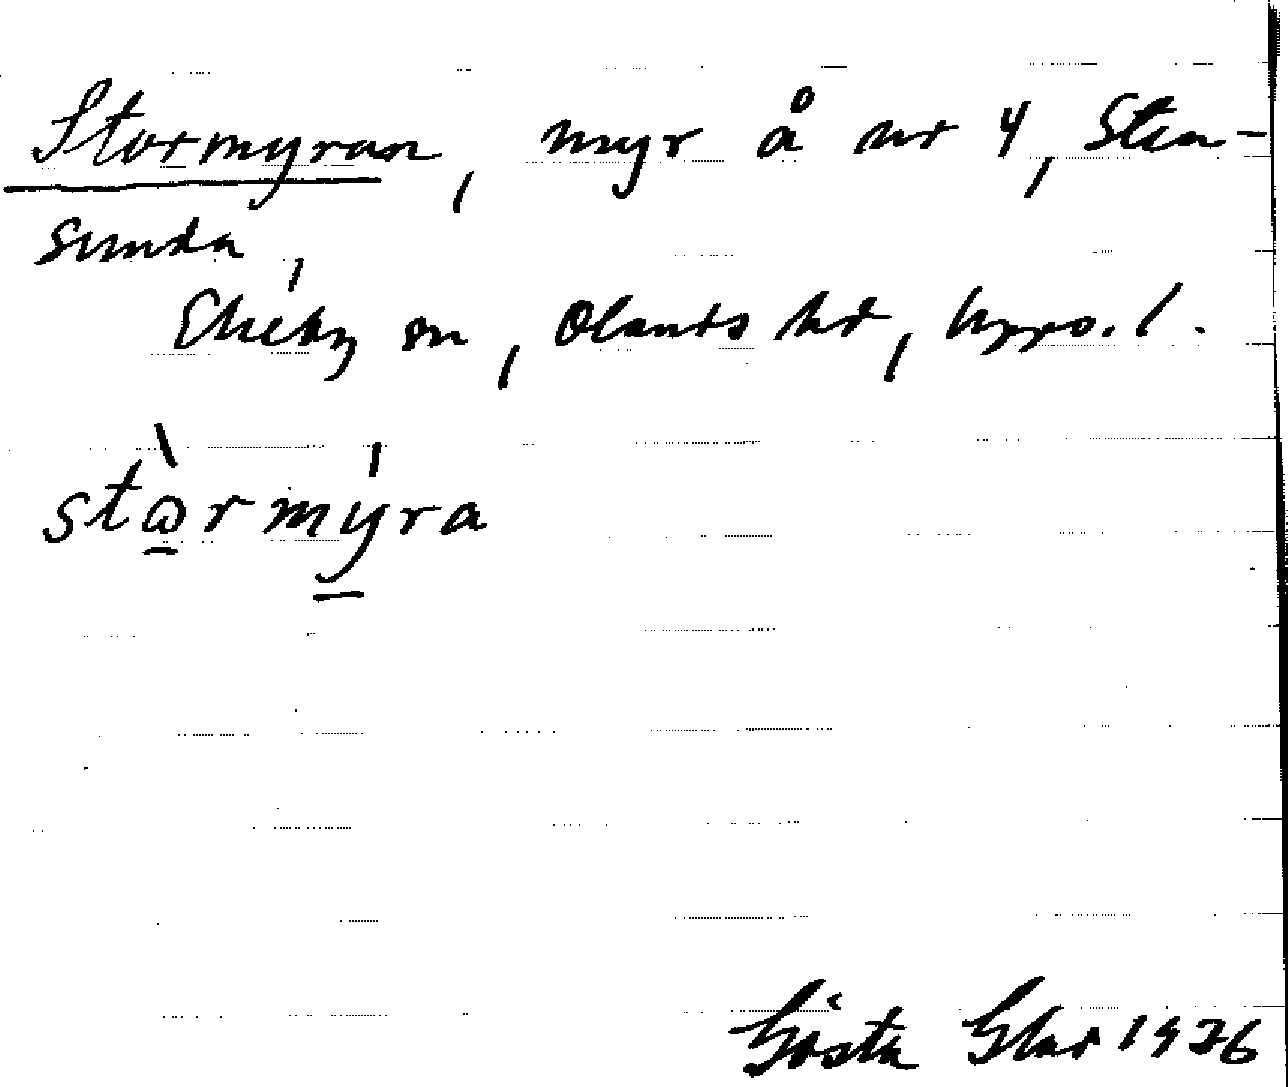 Stormyran, myr å nr 4, Sten-
sunda,
Ekeby sn, Olands hd, Upps. l.
stωrmyra
Gösta Glas 1926